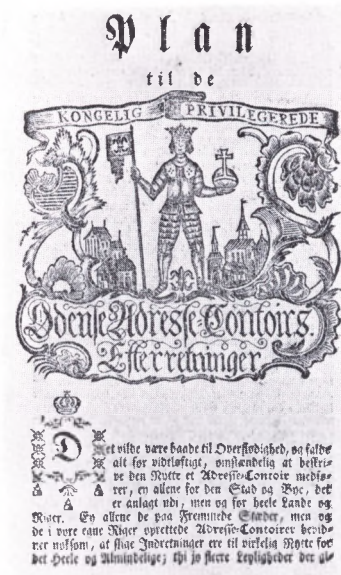 Plan
til de
KONGELIG PRIVILEGEREDE
Odense Adresse-Contoirs
Efterretninger
Det vilde være baade til Overflødighed, og falde
alt for vidtløftigt, omstændelig at beskri-
ve den Nytte et Adresse-Contoir medfø-
rer, ey allene for den Stad og Bye, det
er anlagt udi, men og for heele Lande og
Riger. Ey allene de paa Fremmede Stæder, men og
de i vore egne Riger oprettede Adresse-Contoirer bevid-
ner noksom, at slige Indretninger ere til virkelig Nytte for
det Heele og Almindelige; thi jo fleere Leyligheder der gi-